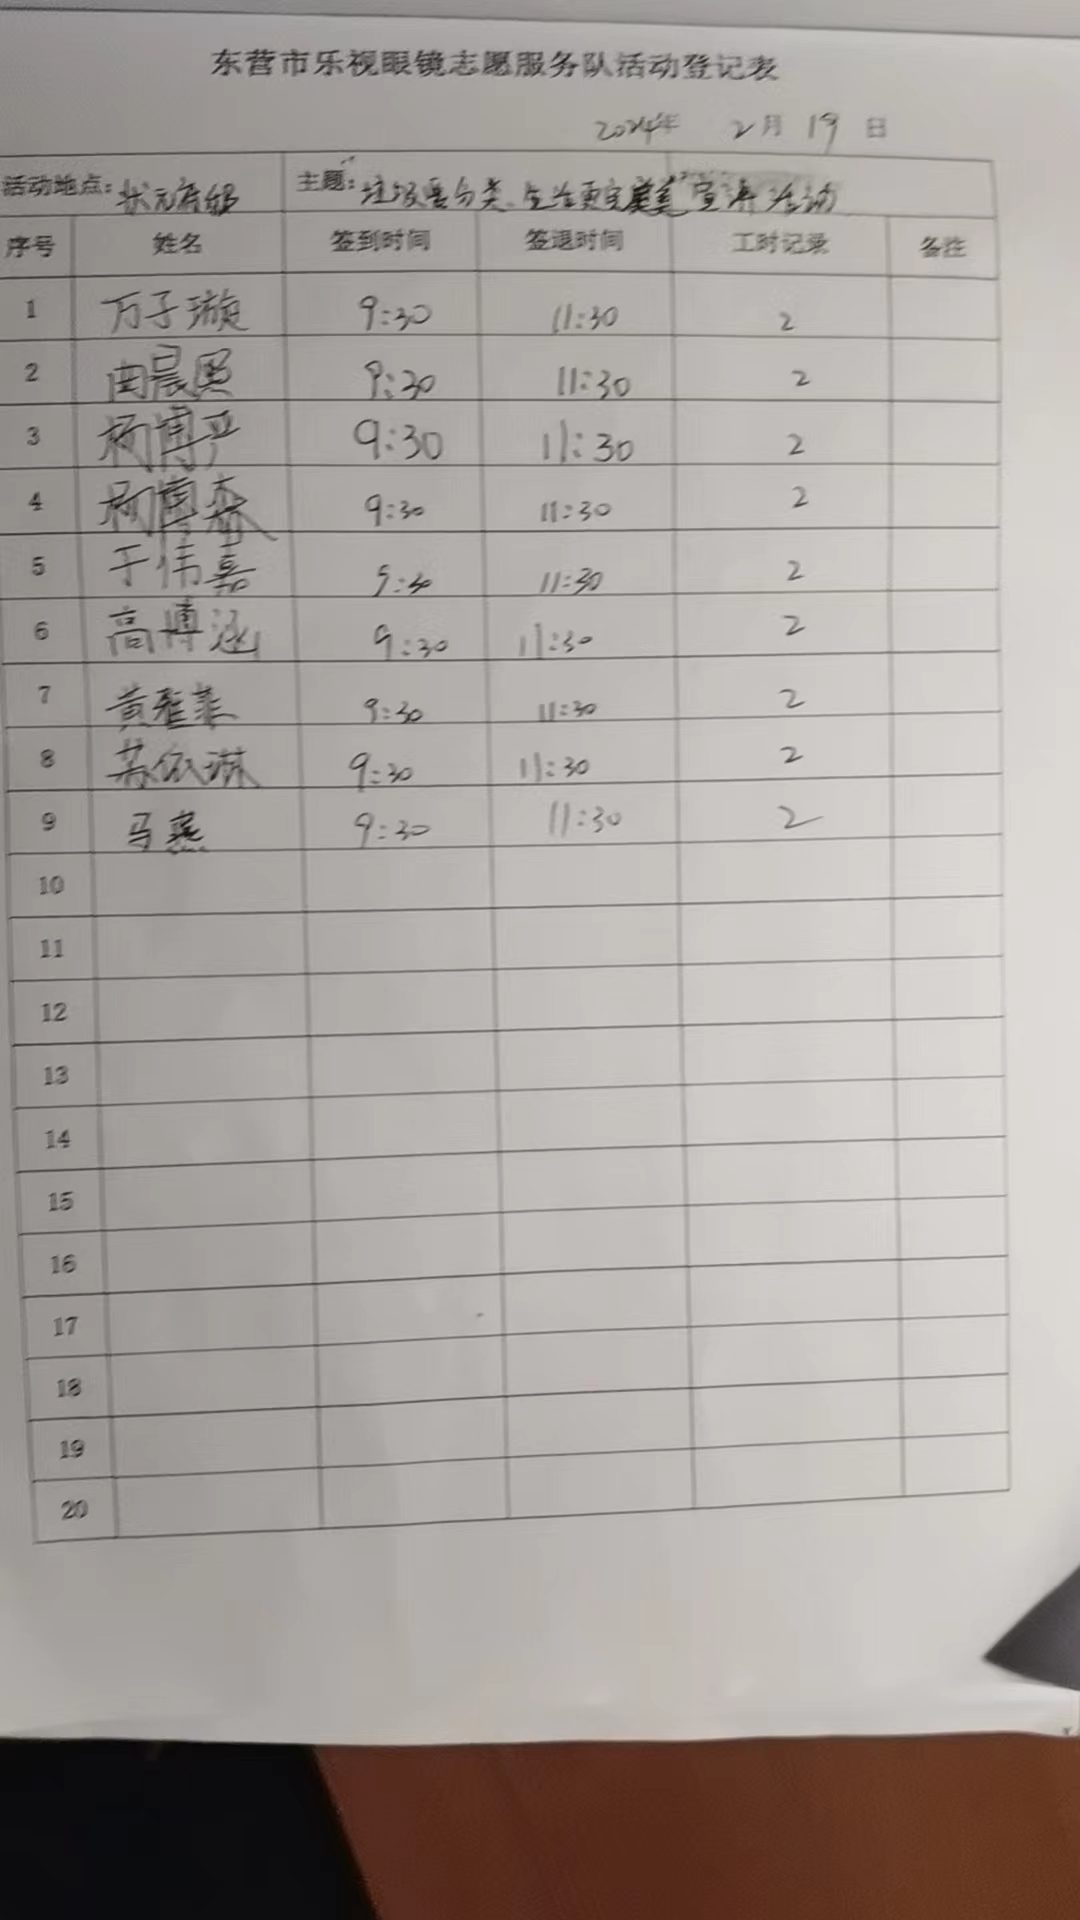 东营市乐视眼镜志愿服务队活动登记表
2024年 2月 19日
活动地点：状元府邸 主题：“垃圾要分类、生活更完美”宣讲活动
序号 姓名 签到时间 签退时间 工时记录 备注
1 万子璇 9:30 11:30 2
2 曲晨 9:30 11:30 2
3 杨博严 9:30 11:30 2
4 杨博森 9:30 11:30 2
5 于伟嘉 9:30 11:30 2
6 高博涵 9:30 11:30 2
7 黄雅菲 9:30 11:30 2
8 苏依琳 9:30 11:30 2
9 马燕 9:30 11:30 2
10
11
12
13
14
15
16
17
18
19
20